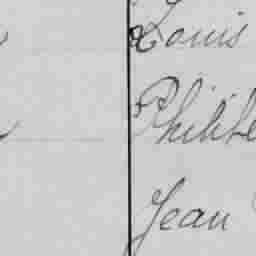 Louis
Philibe
Jean